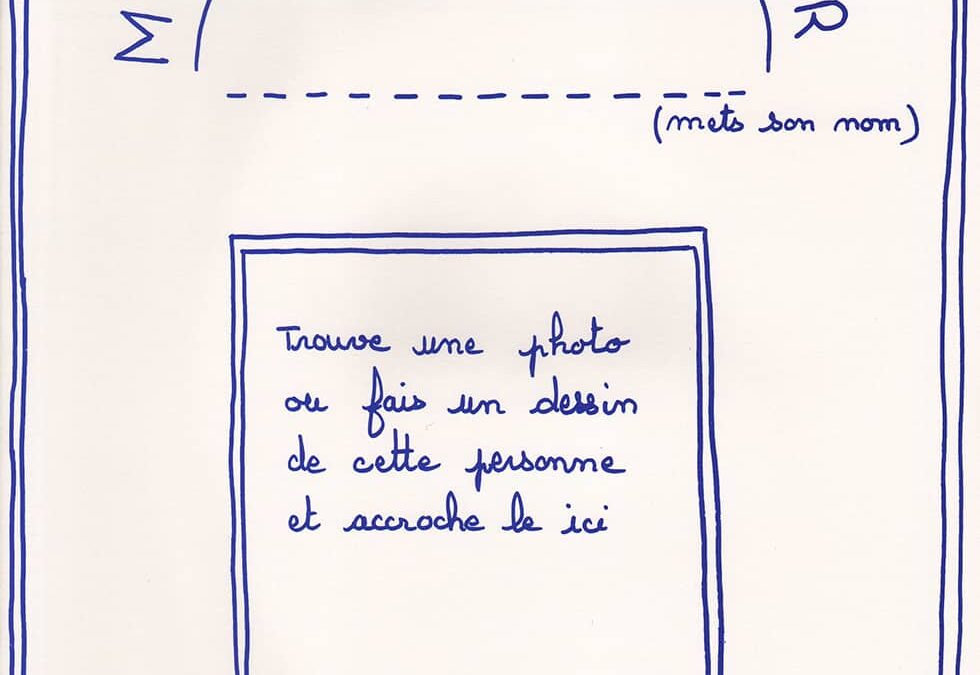 M R
(mets son nom)
Trouve une photo
ou fais un dessin
de cette personne
et accroche le ici